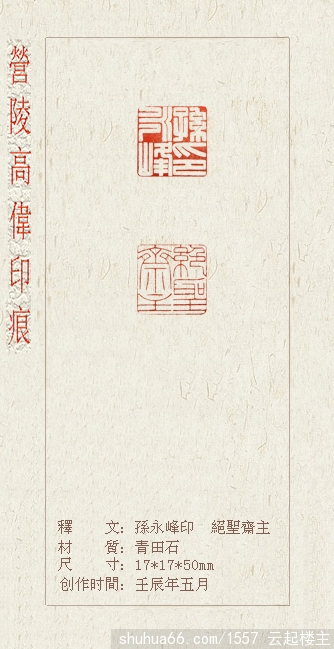 營陵高偉印痕
孫永峰印
絕聖齋主
釋文：孫永峰印 絕聖齋主
材質：青田石
尺寸：17*17*50mm
创作时間：壬辰年五月
shuhua66.com/1557 云起楼主